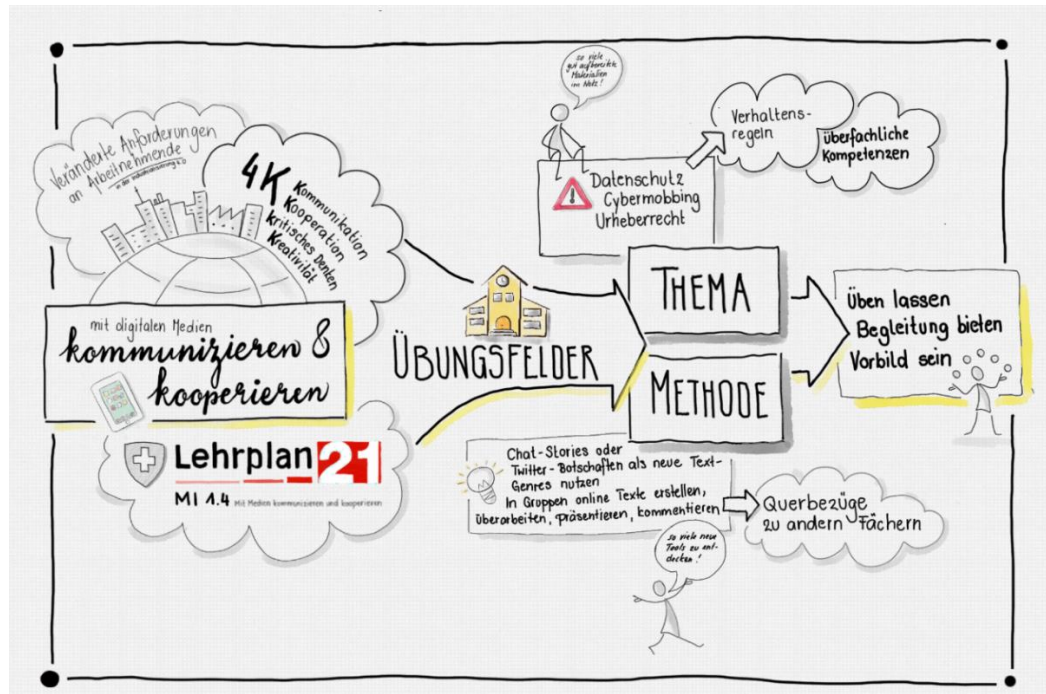 Veränderte Anforderungen
an Arbeitnehmende
in der Industrialisierung 4.0
4K
Kommunikation
Kooperation
kritisches Denken
Kreativität
mit digitalen Medien
kommunizieren &
kooperieren
Lehrplan 21
MI 1.4 Mit Medien kommunizieren und kooperieren
ÜBUNGSFELDER
so viele
gut aufbereitete
Materialien
im Netz!
Datenschutz
Cybermobbing
Urheberrecht
Verhaltens-
regeln
überfachliche
Kompetenzen
THEMA
METHODE
Chat-Stories oder
Twitter-Botschaften als neue Text-
Genres nutzen
In Gruppen online Texte erstellen,
überarbeiten, präsentieren, kommentieren
so viele neue
Tools zu ent-
decken!
Querbezüge
zu andern Fächern
Üben lassen
Begleitung bieten
Vorbild sein